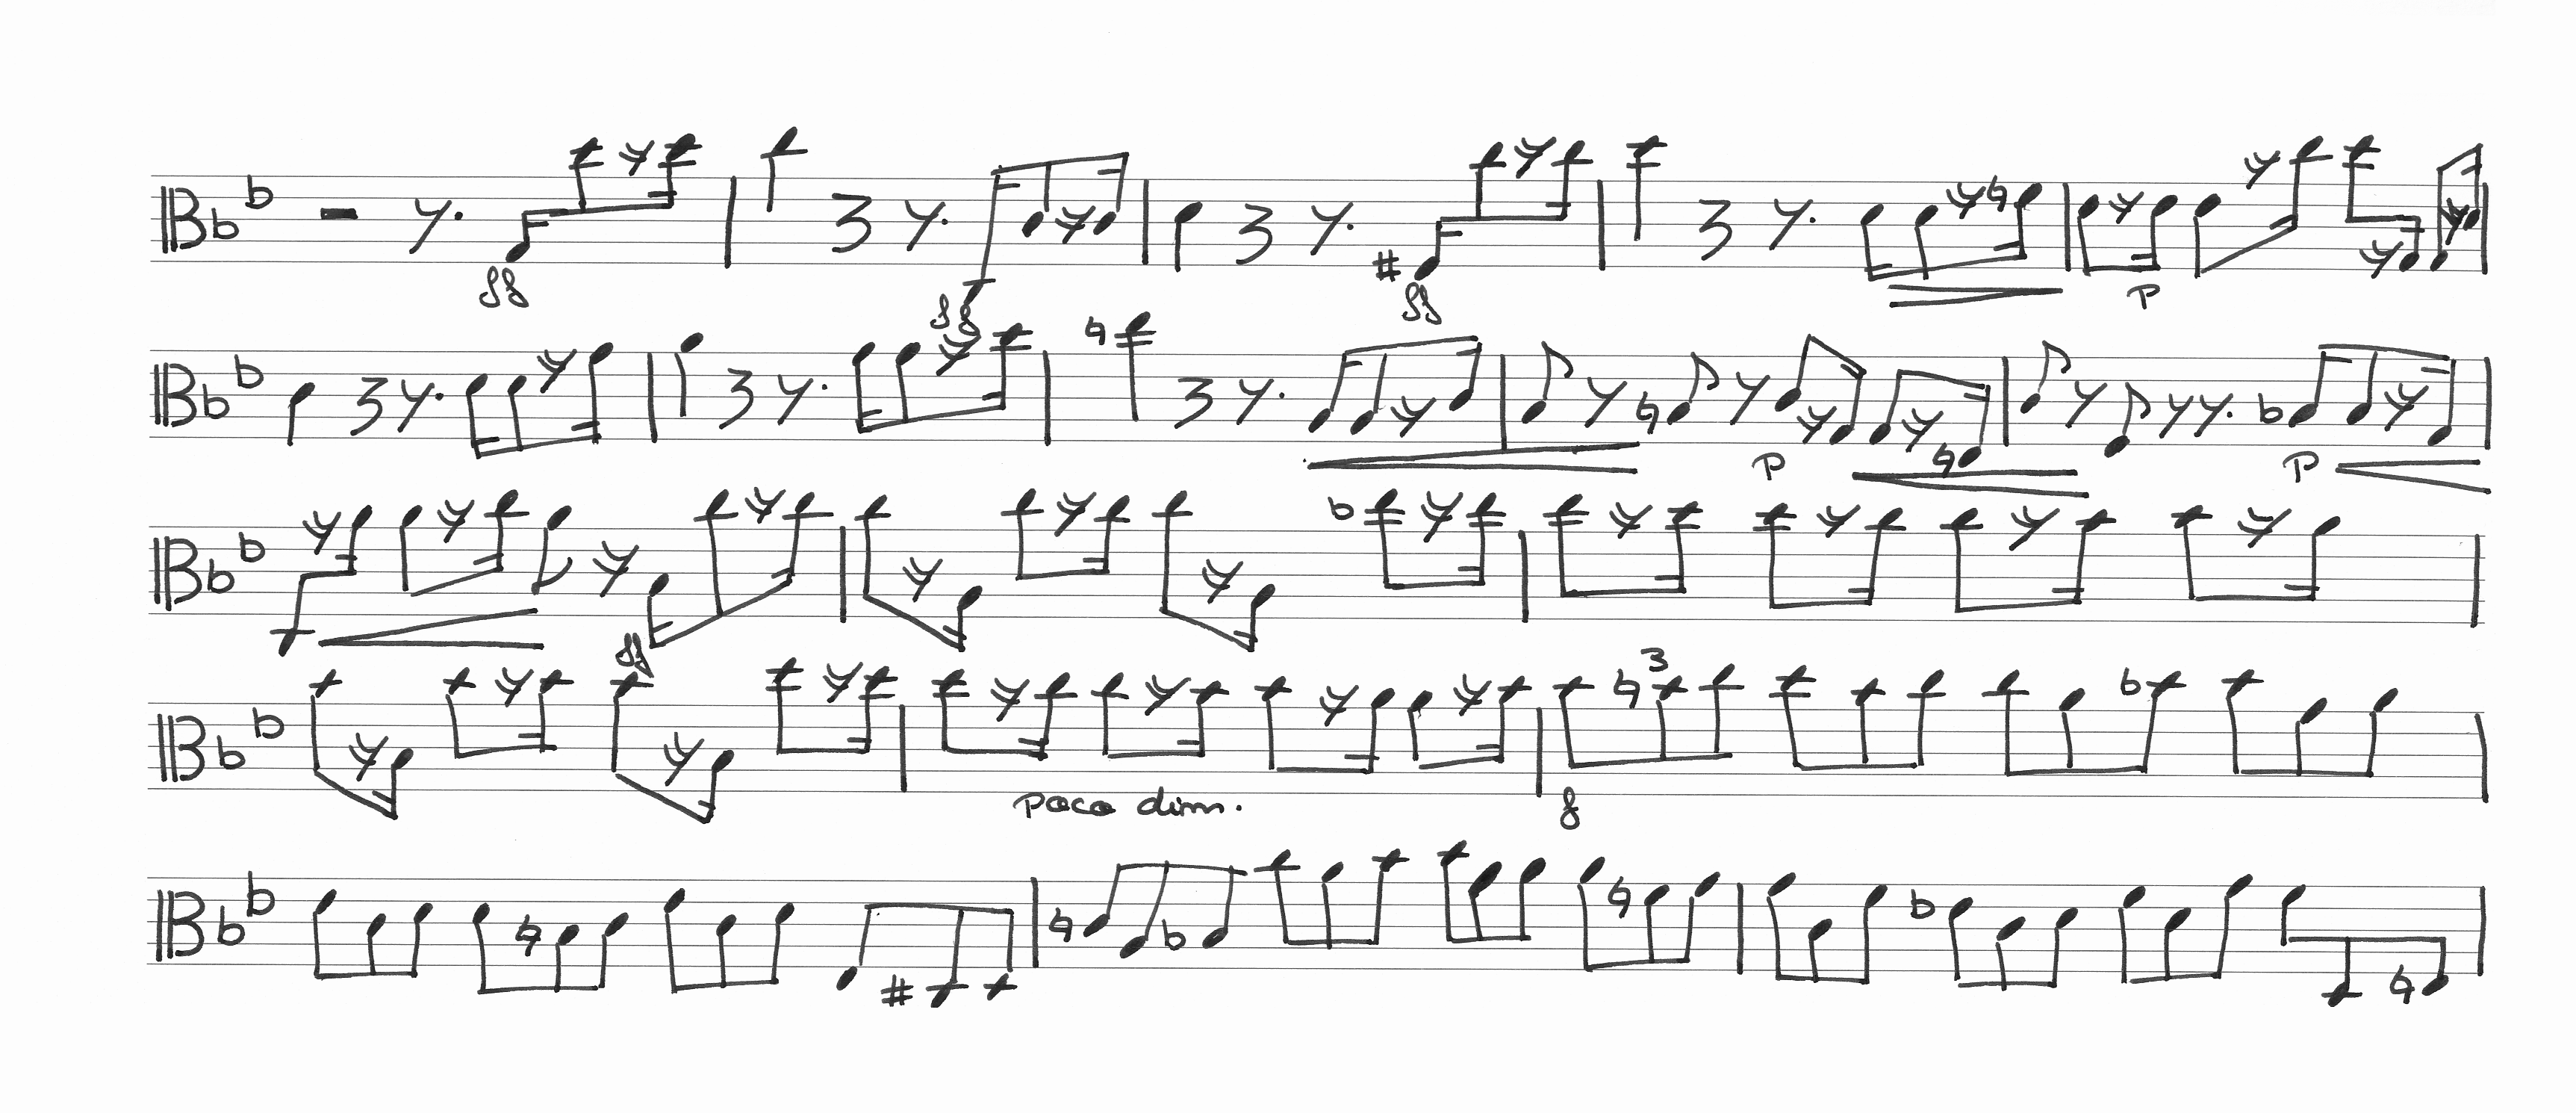 ff ff ff p
p p
ff
poco dim. 3 f